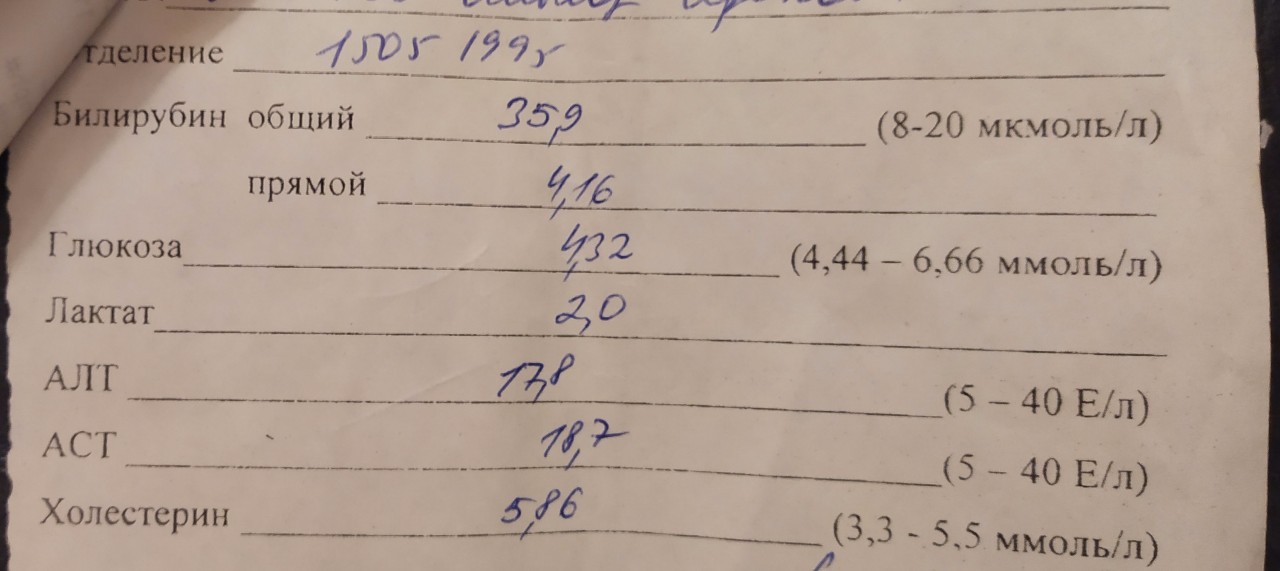 тделение 1505 1995
Билирубин общий 35,9 (8-20 мкмоль/л)
прямой 4,16
Глюкоза 4,32 (4,44 – 6,66 ммоль/л)
Лактат 2,0
АЛТ 17,8 (5 – 40 Е/л)
АСТ 18,7 (5 – 40 Е/л)
Холестерин 5,86 (3,3 - 5,5 ммоль/л)